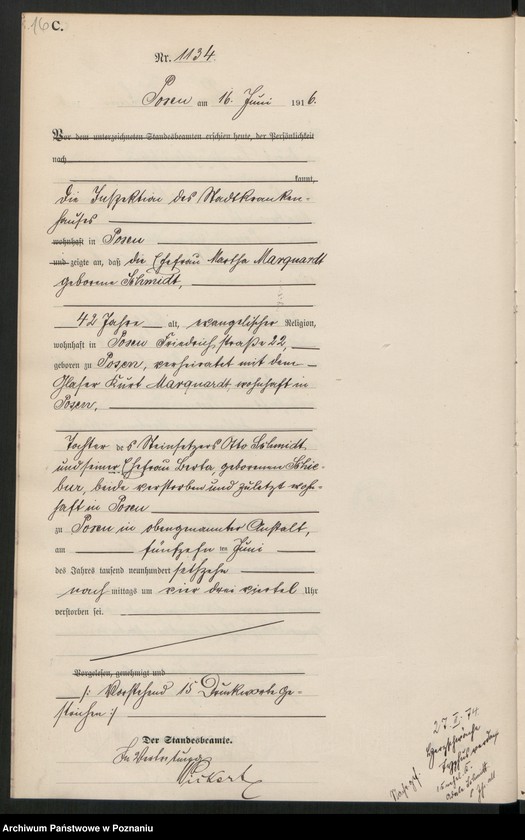 16 C.
Nr. 1134.
Posen am 16. Juni 1916.
Vor dem unterzeichneten Standesbeamten erschien heute, der Persönlichkeit
nach
kannt,
die Inspektion des Stadtkranken-
hauses
wohnhaft in Posen
und zeigte an, daß die Ehefrau Martha Marquardt
geborene Schmidt,
42 Jahre alt, evangelischer Religion,
wohnhaft in Posen Friedrichstraße 22,
geboren zu Posen, verheiratet mit dem
Glaser Kurt Marquardt, wohnhaft in
Posen,
Tochter des Steinsetzers Otto Schmidt
und seiner Ehefrau Berta, geborenen
beide verstorben und zuletzt wohn-
haft in Posen
zu Posen in obengenannter Anstalt,
am fünfzehn ten Juni
des Jahres tausend neunhundert sechzehn
nach mittags um vier drei viertel Uhr
verstorben sei.
Vorgelesen, genehmigt und
/: Vorstehend 15 Druckworte ge-
strichen :/
Der Standesbeamte.
In Vertretung
27. 74
Herzschwäche
Schmidt
Archiwum Państwowe w Poznaniu